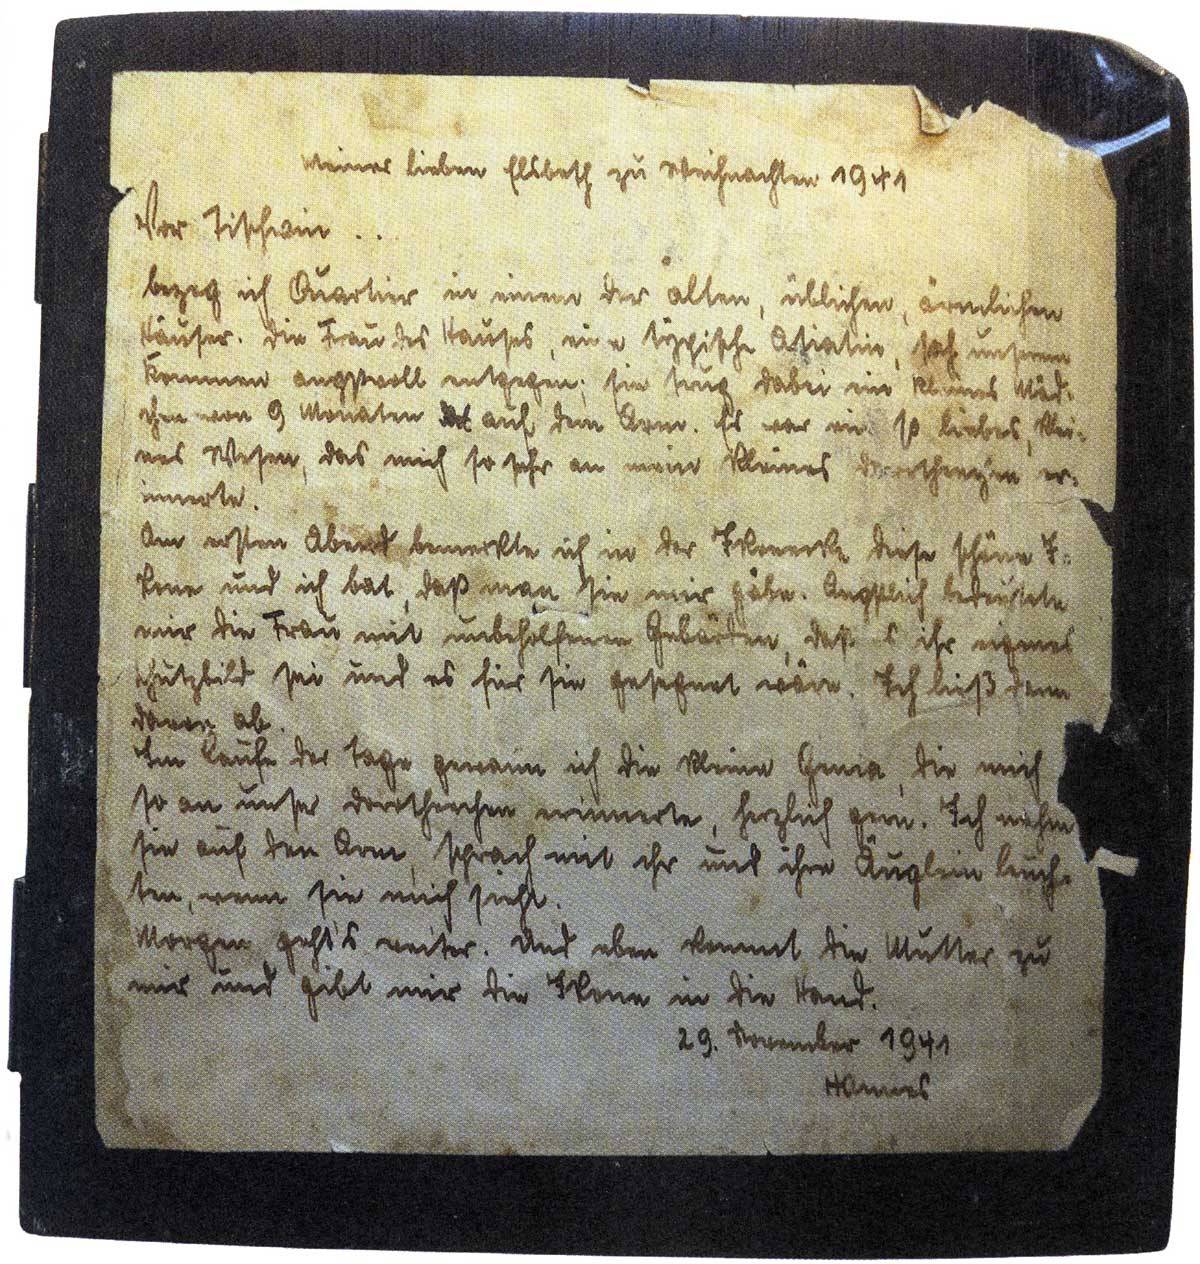 Meiner lieben Elsbeth zu Weihnachten 1941
Vor Tischwin . . .
bezog ich Quartier in einem der alten, üblichen, ärmlichen
Häuser. Die Frau des Hauses, eine typische Asiatin, sah unserem
Kommen angstvoll entgegen; sie trug dabei ein kleines Mäd-
chen von 9 Monaten auf dem Arm. Es war ein so liebes, klei-
nes Wesen, das mich so sehr an mein kleines Dorotheechen er-
innerte.
Am ersten Abend bemerkte ich in der Ikonenecke diese schöne I-
kone und ich bat, daß man sie mir gäbe. Ängstlich bedeutete
mir die Frau mit unbeholfenen Gebärden, daß es ihr eigenes
Schutzbild sei und es für sie gesegnet wäre. Ich ließ denn
davon ab.
Im Laufe der Tage gewann ich die kleine Genia, die mich
so an unser Dorotheechen erinnerte, herzlich gern. Ich nahm
sie auf den Arm, sprach mit ihr und ihre Äuglein leuch-
ten, wenn sie mich sieht.
Morgen geht's weiter. Und eben kommt die Mutter zu
mir und gibt mir die Ikone in die Hand.
29. November 1941
Hannes